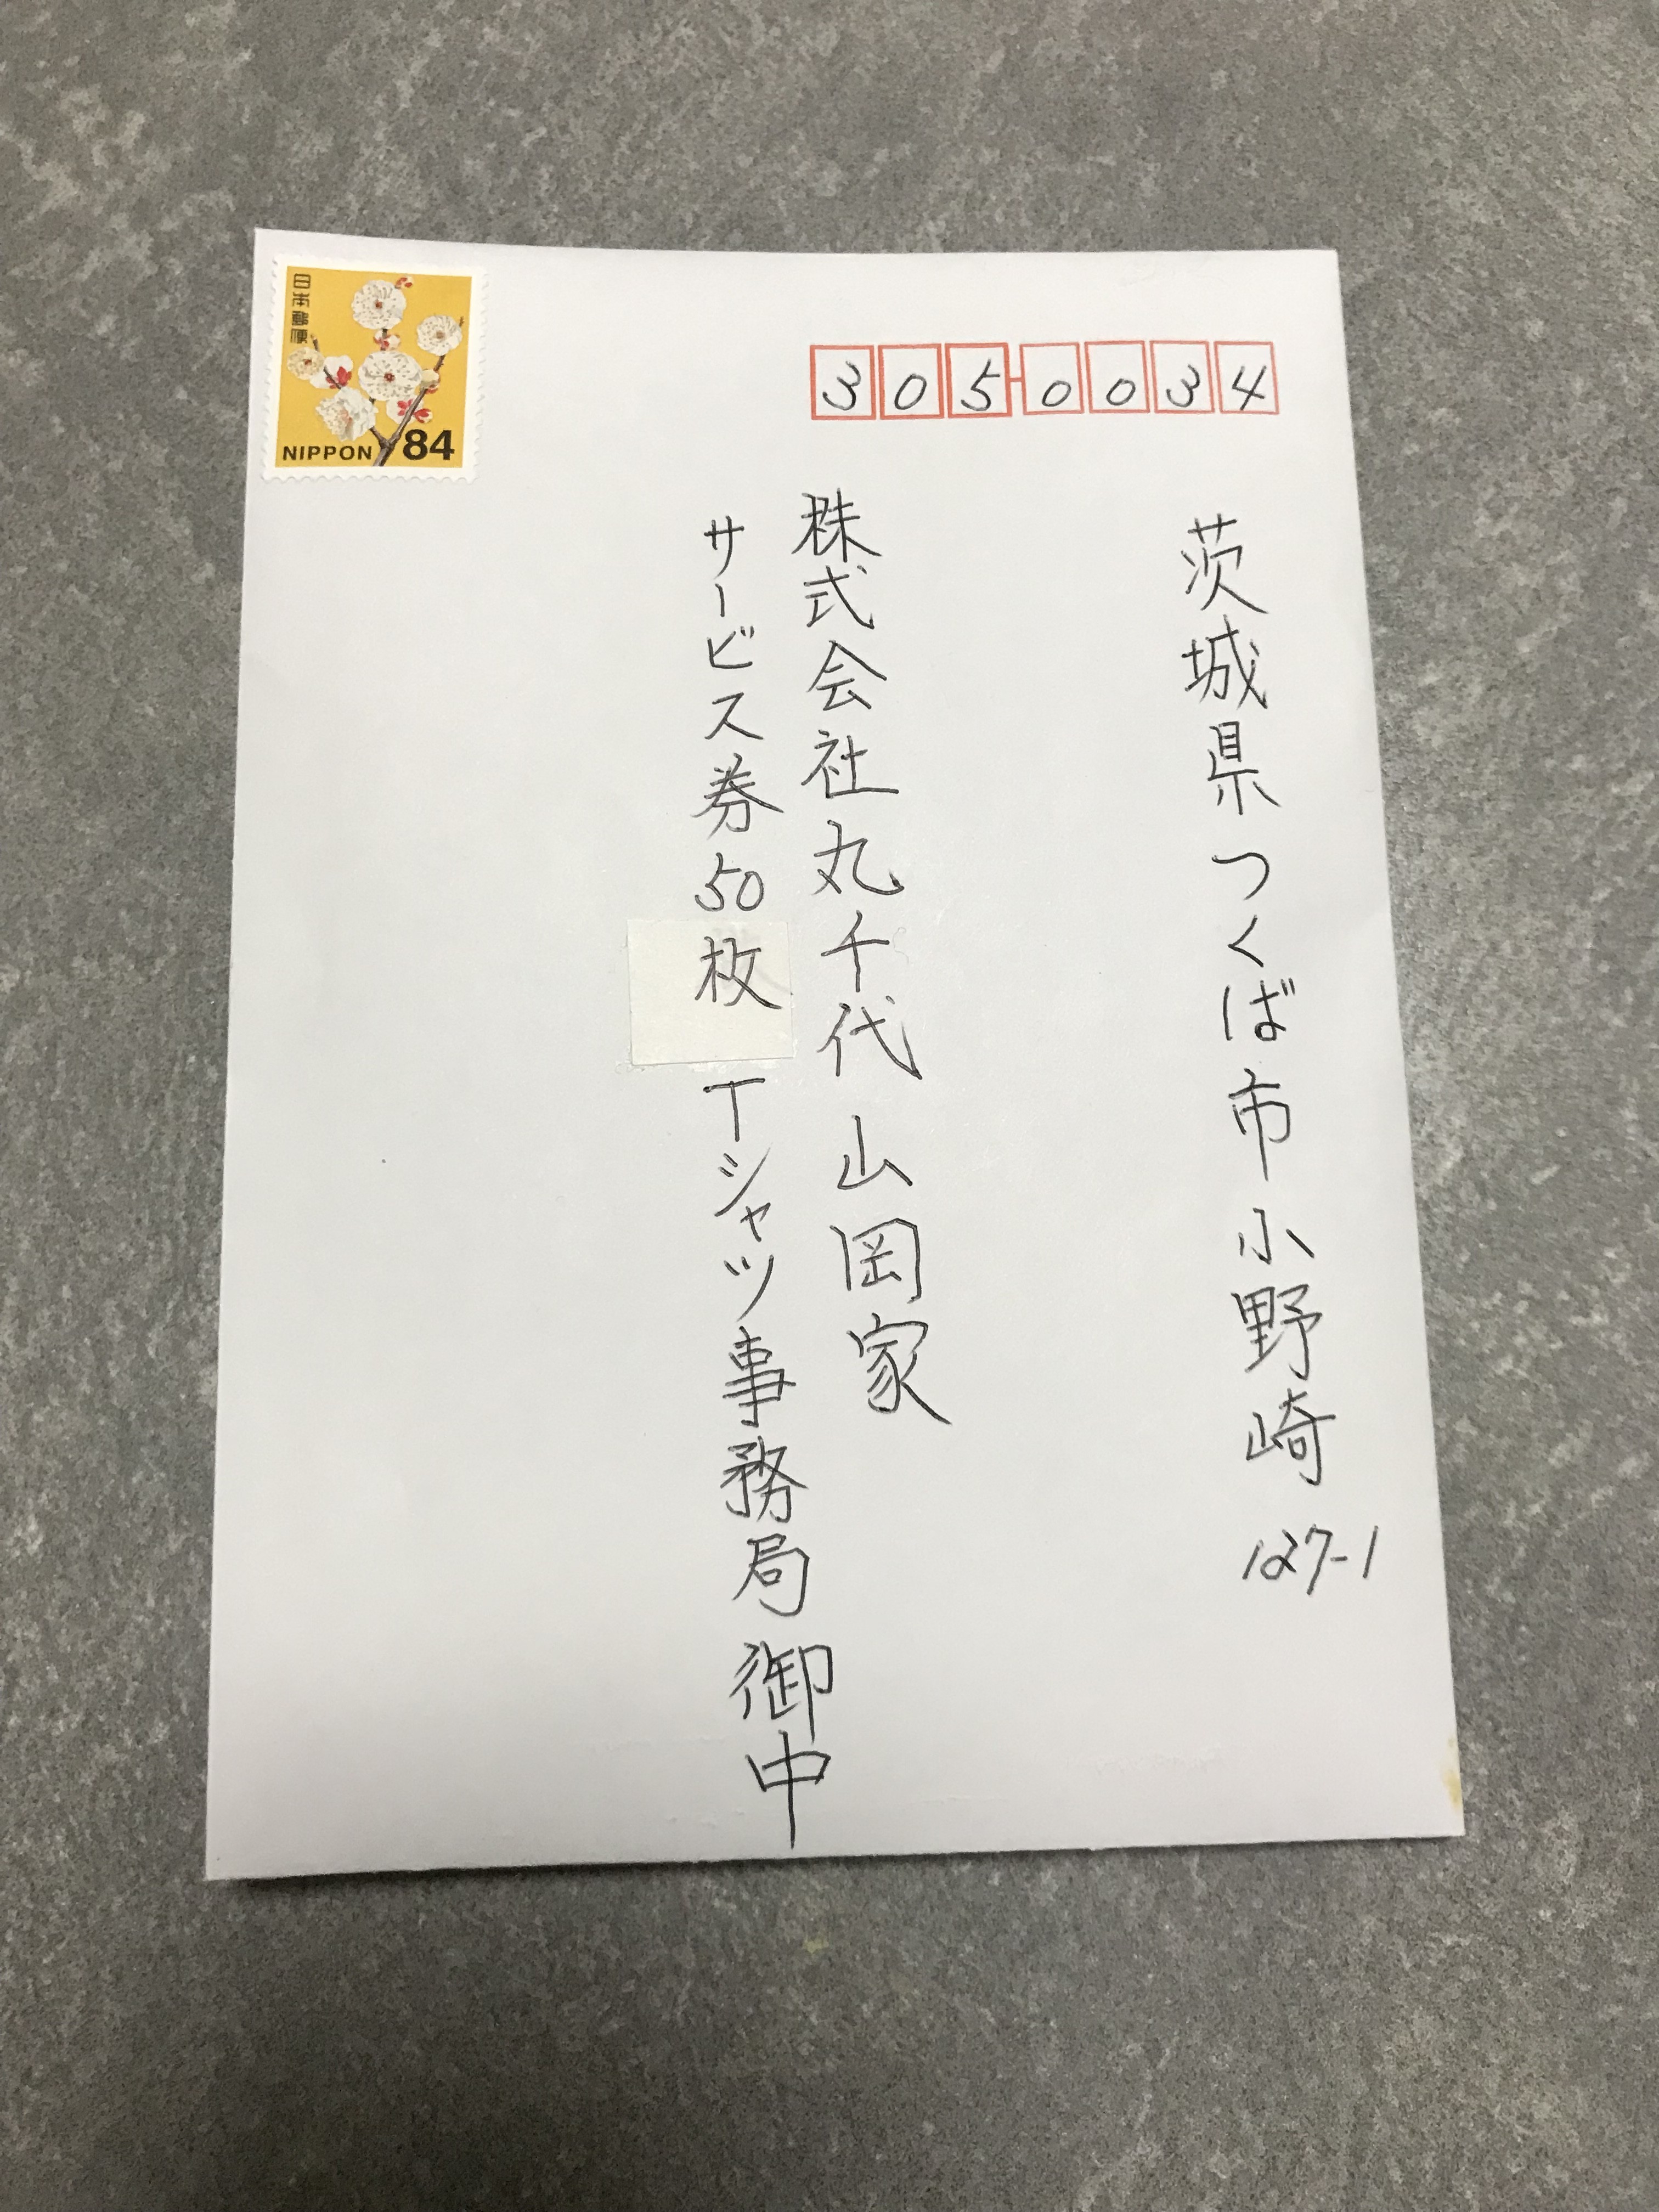 日本郵便
NIPPON 84
305-0034
茨城県つくば市小野崎127-1
株式会社丸千代山岡家
サービス券50枚Tシャツ事務局御中